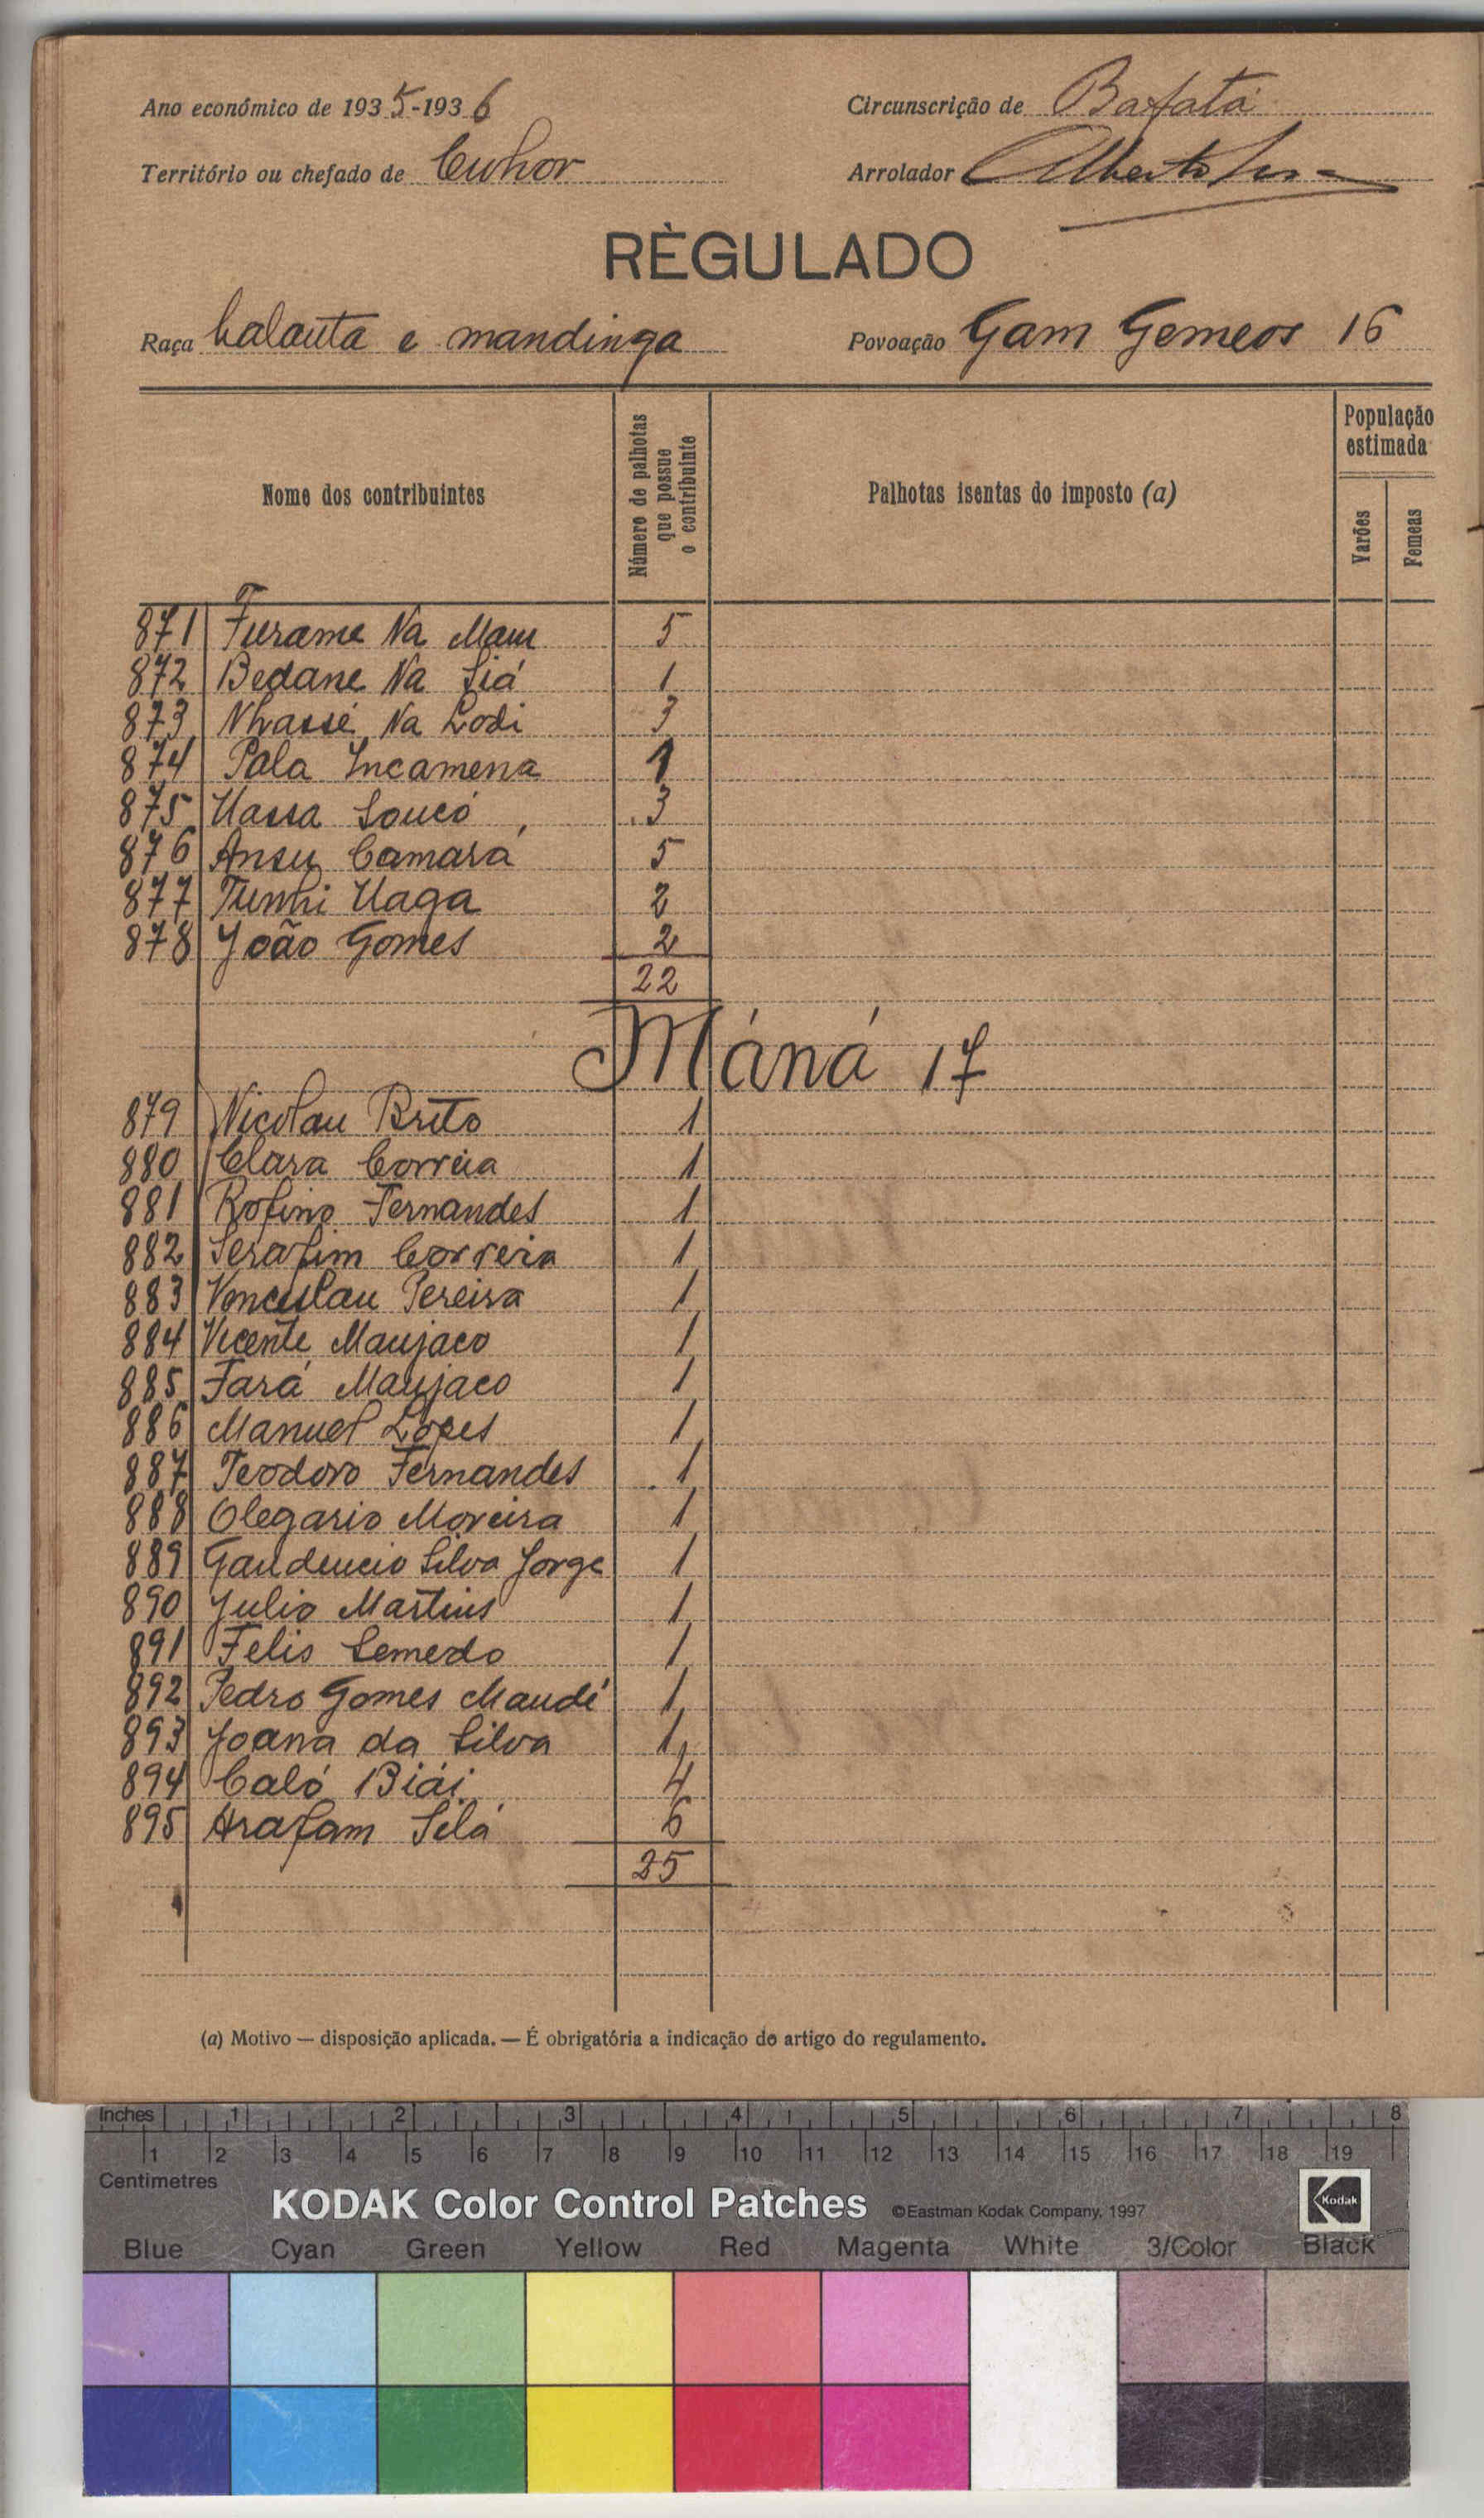 Ano económico de 1935-1936
Circunscrição de Bafatá
Território ou chefado de Cuhor
Arrolador Alberto
RÈGULADO
Raça balanta e mandinga
Povoação Gam Gemeos 16
Nome dos contribuintes
Número de palhotas que possue o contribuinte
Palhotas isentas do imposto (a)
População estimada
Varões
Femeas
871 Furame Na Mam 5
872 Bedane Na Siá 1
873 Nhassé Na Lodi 3
874 Pala Incamena 1
875 Uassa Soncó 3
876 Ansu Camará 5
877 Tumhi Uaga 2
878 João Gomes 2
22
Máná 17
879 Nicolau Brito 1
880 Clara Correia 1
881 Rofino Fernandes 1
882 Serafim Correia 1
883 Venceslau Pereira 1
884 Vicente Manjaco 1
885 Fará Manjaco 1
886 Manuel Lopes 1
887 Teodoro Fernandes 1
888 Olegario Moreira 1
889 Gaudencio Silva Jorge 1
890 Julio Martins 1
891 Felis Semedo 1
892 Pedro Gomes Mandé 1
893 Joana da Silva 1
894 Caló Biái 4
895 Arafam Silá 6
25
(a) Motivo — disposição aplicada. — É obrigatória a indicação do artigo do regulamento.
Inches 1 2 3 4 5 6 7 8
1 2 3 4 5 6 7 8 9 10 11 12 13 14 15 16 17 18 19
Centimetres
KODAK Color Control Patches ©Eastman Kodak Company, 1997 Kodak
Blue Cyan Green Yellow Red Magenta White 3/Color Black